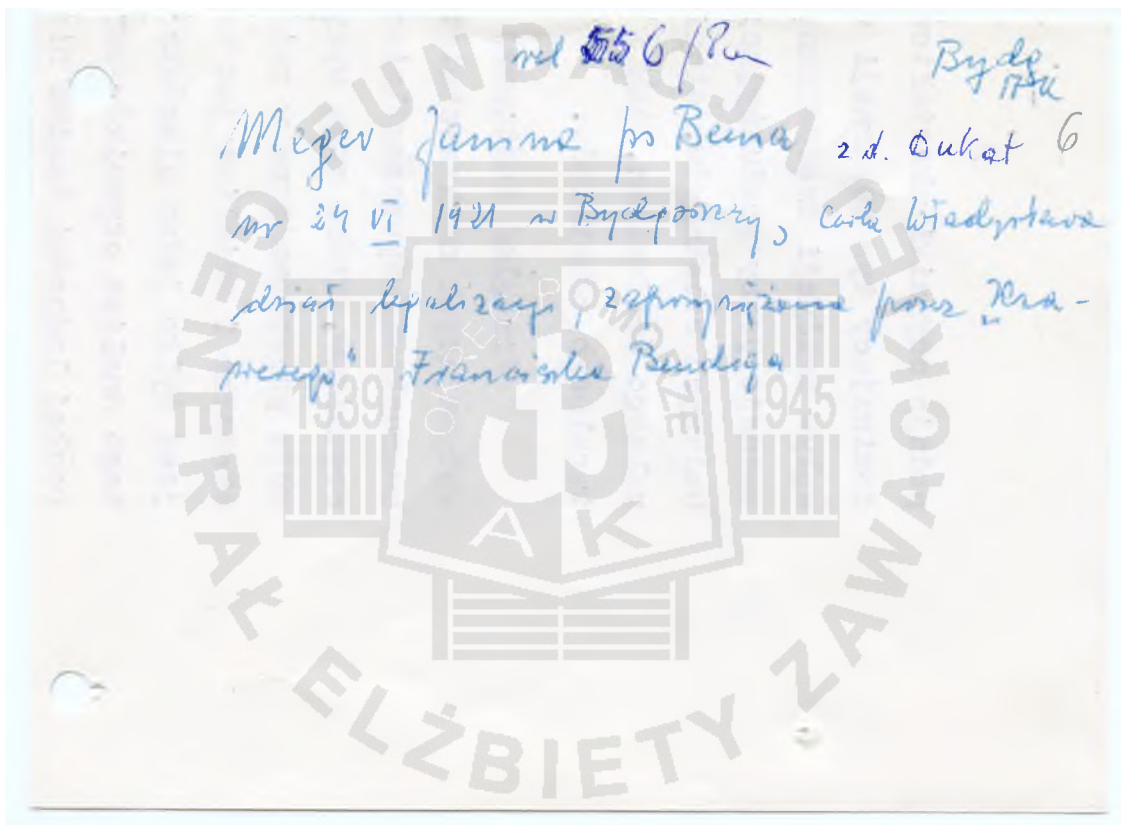 rel 556/Pm Bydg.
Meger Janina ps Bema z d. Dukat 6
ur 24 VI 1921 w Bydgoszczy, córka Władysława
dział legalizacji, zaprzysiężona przez "Kra-
wcego" Franciszka Bendiga
FUNDACJA GENERAŁ ELŻBIETY ZAWACKIEJ
OKRĘG POMORZE
1939 1945
AK